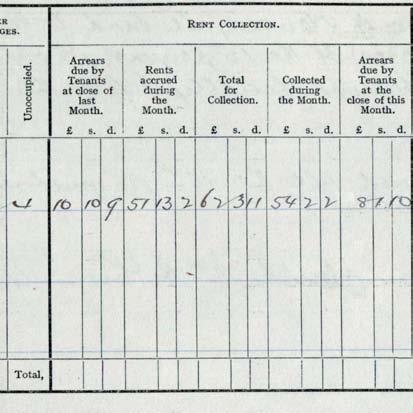 ER
GES.
RENT COLLECTION.
Unoccupied.
Arrears
due by
Tenants
at close of
last
Month.
Rents
accrued
during
the
Month.
Total
for
Collection.
Collected
during
the Month.
Arrears
due by
Tenants
at the
close of this
Month.
£ s. d. £ s. d. £ s. d. £ s. d. £ s. d.
4 10 10 9 51 13 2 62 3 11 54 2 2 8 1 10
Total,